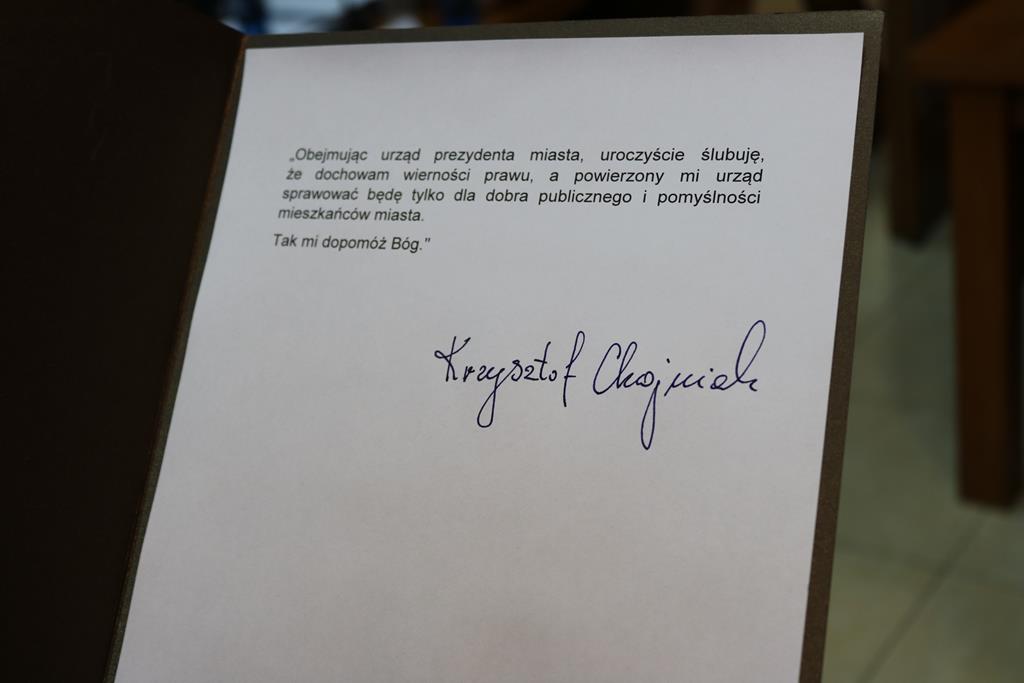 „Obejmując urząd prezydenta miasta, uroczyście ślubuję,
że dochowam wierności prawu, a powierzony mi urząd
sprawować będę tylko dla dobra publicznego i pomyślności
mieszkańców miasta.
Tak mi dopomóż Bóg."
Krzysztof Chojniak